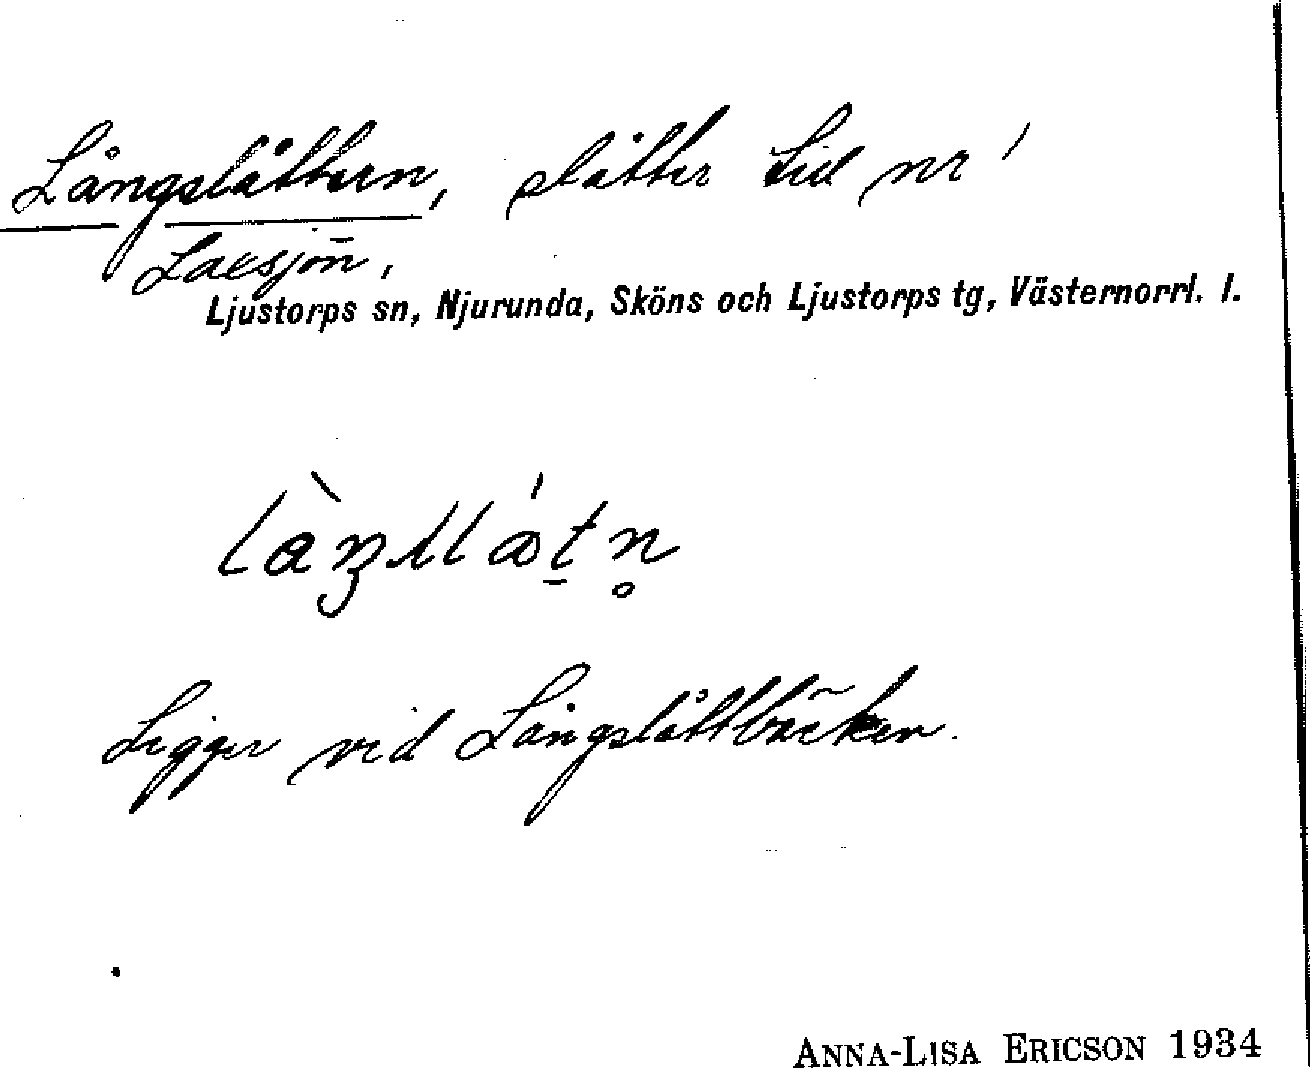 Långslåttern, slåtter till nr 1
Laxsjön,
Ljustorps sn, Njurunda, Sköns och Ljustorps tg, Västernorrl. l.
Ligger vid Långslåttbäcken.
ANNA-LISA ERICSON 1934